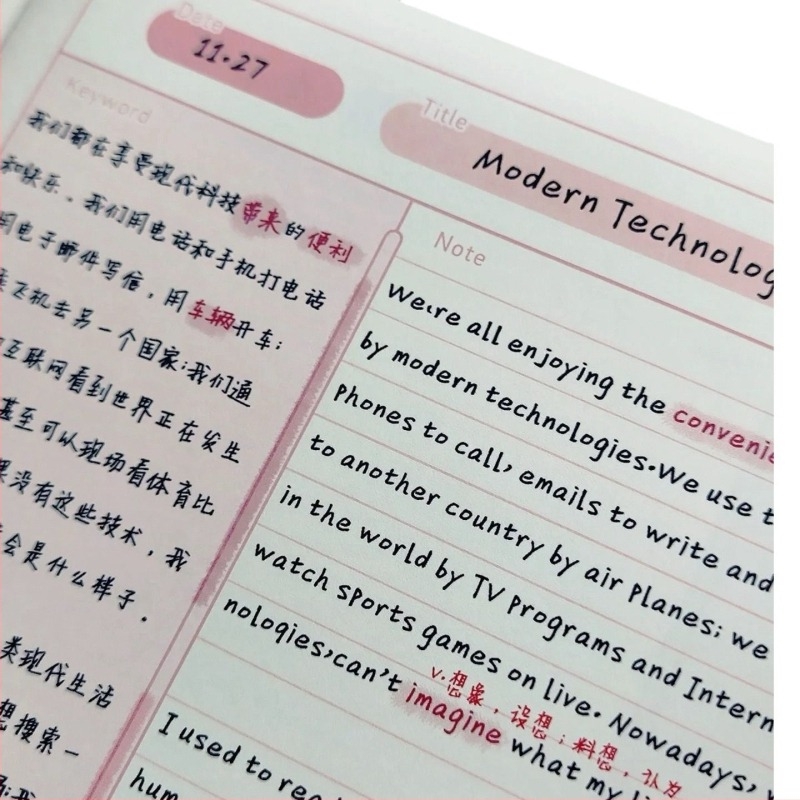 Date
11.27
Title
Modern Technolog
Keyword
我们都在享受现代科技带来的便利
和快乐。我们用电话和手机打电话
用电子邮件写信，用车辆开车；
乘飞机去另一个国家；我们通
互联网看到世界正在发生
甚至可以现场看体育比
果没有这些技术，我
会是什么样子。
类现代生活
想搜索一
Note
We're all enjoying the convenie
by modern technologies. We use t
Phones to call, emails to write and
to another country by air Planes; we
in the world by TV Programs and Intern
watch sports games on live. Nowadays,
nologies, can't imagine what my li
v.想象，设想；料想，认为
I used to rea
hum